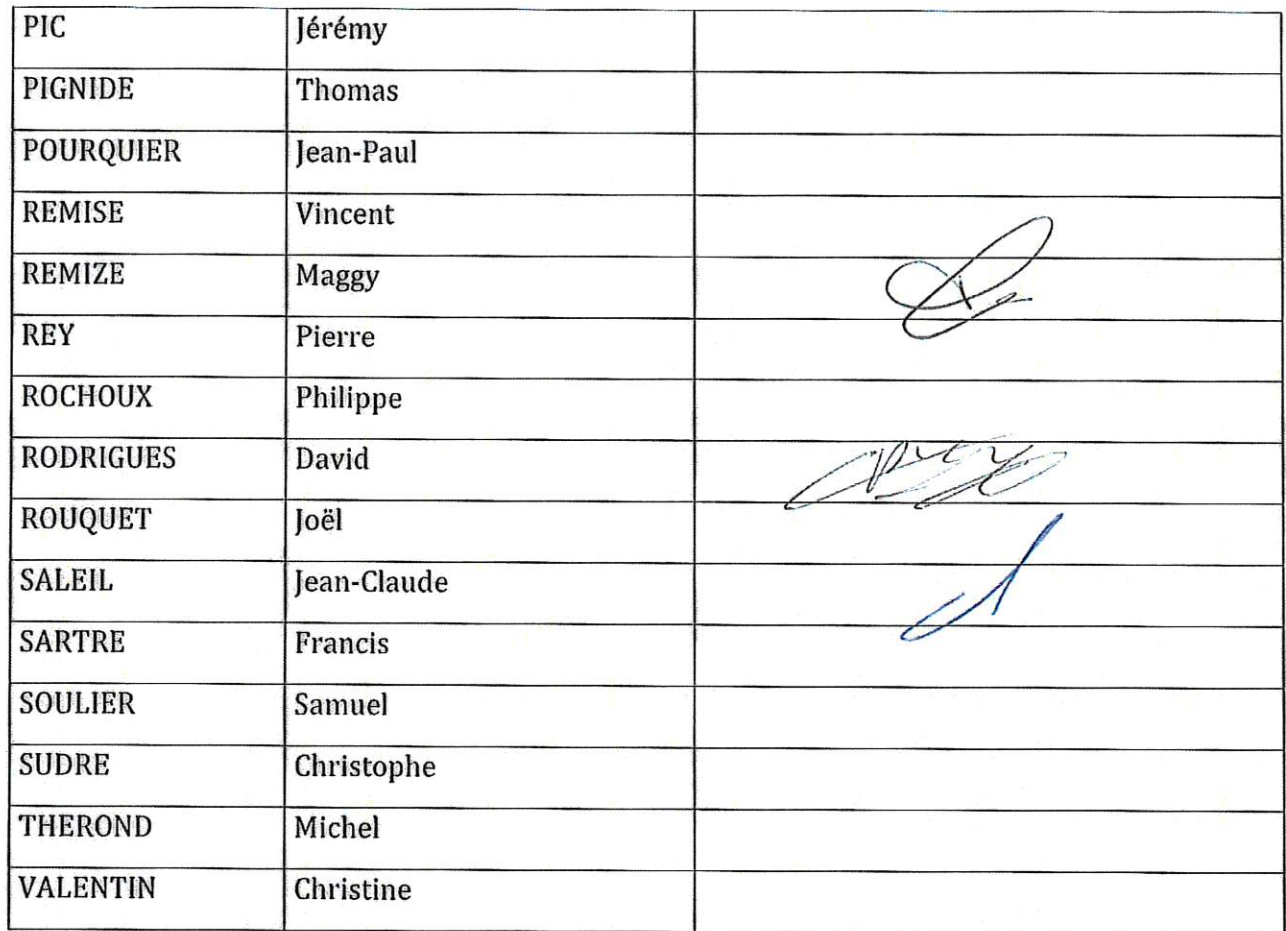 PIC Jérémy
PIGNIDE Thomas
POURQUIER Jean-Paul
REMISE Vincent
REMIZE Maggy
REY Pierre
ROCHOUX Philippe
RODRIGUES David
ROUQUET Joël
SALEIL Jean-Claude
SARTRE Francis
SOULIER Samuel
SUDRE Christophe
THEROND Michel
VALENTIN Christine